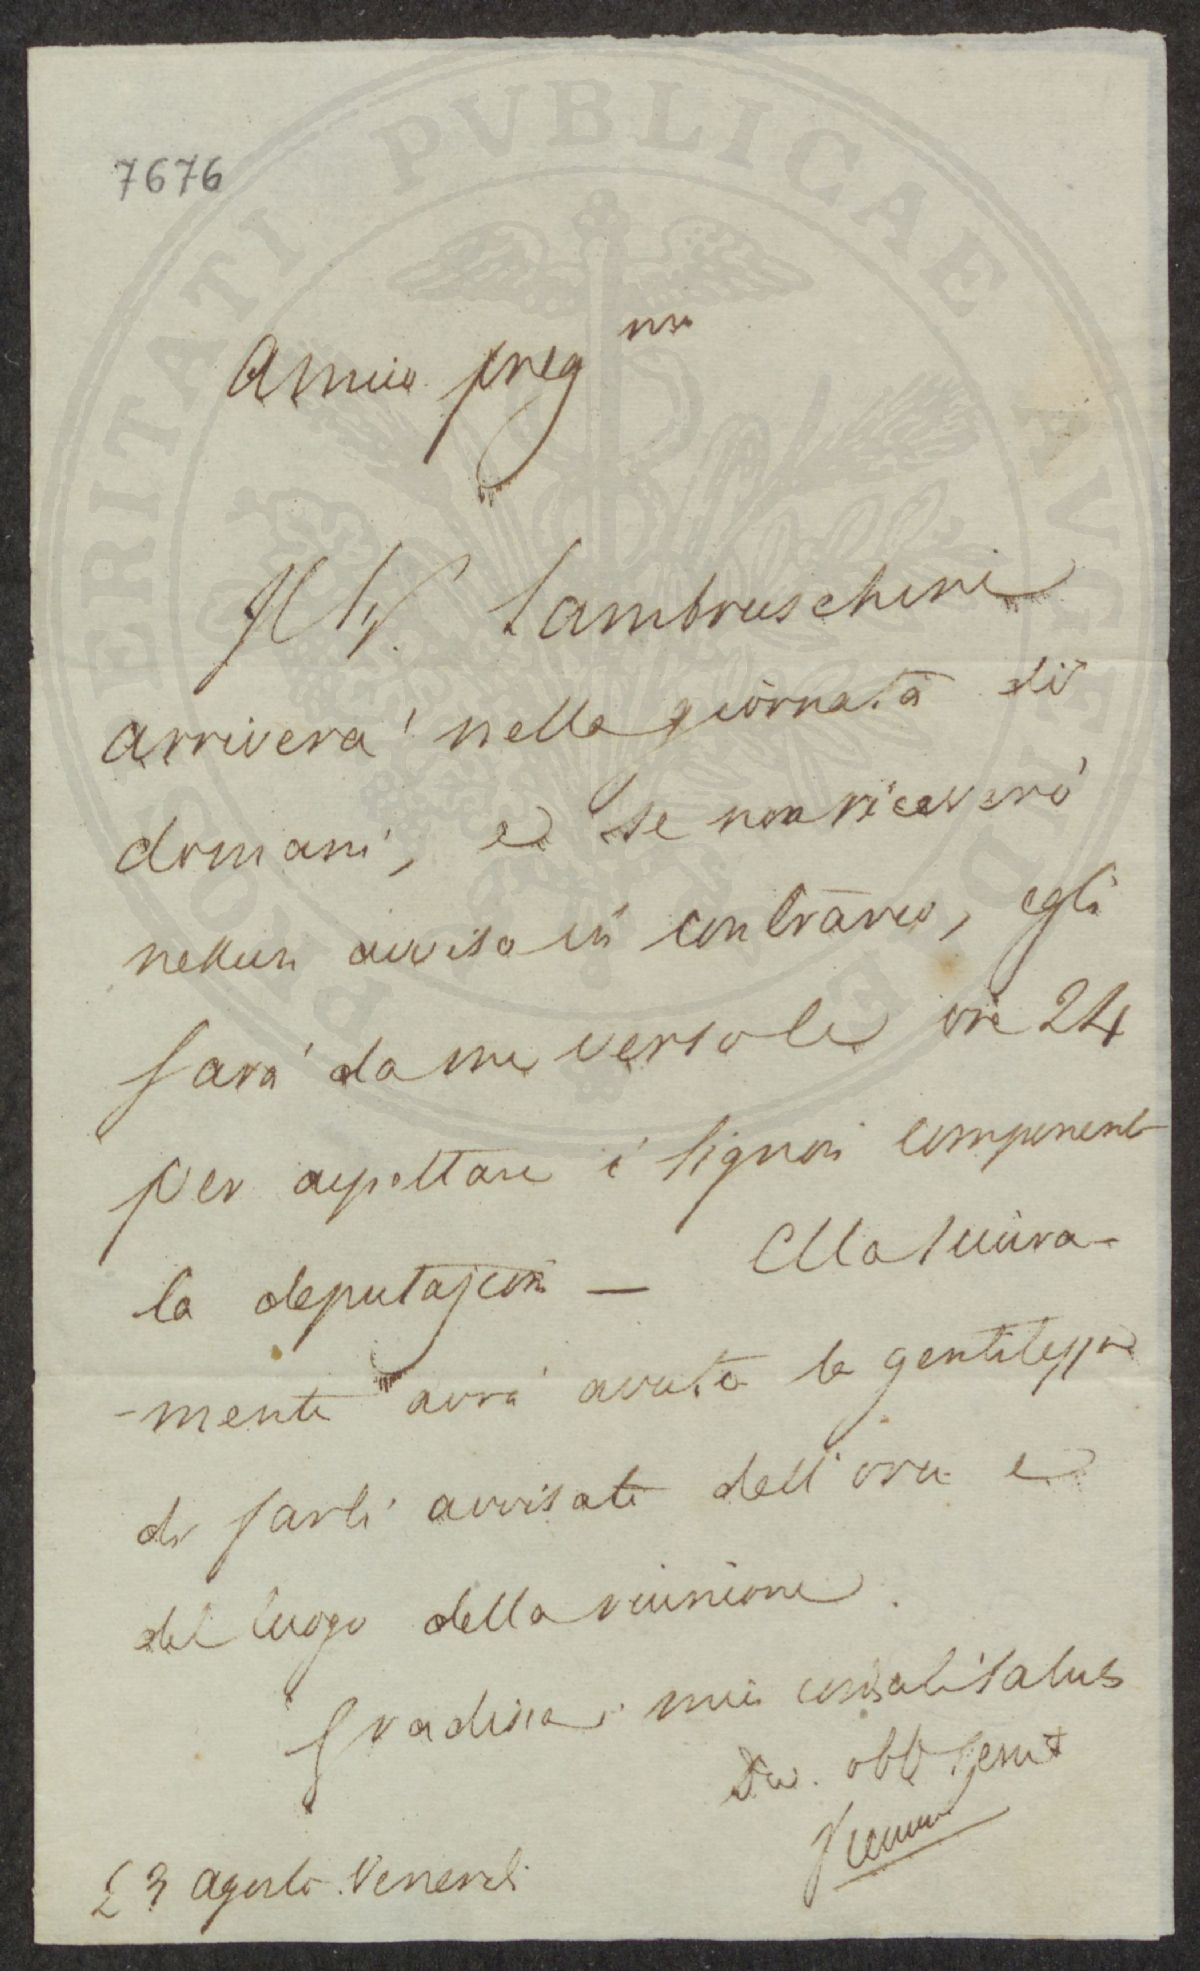 7676
Amico preg mo
Il Sig. Lambruschini
arriverà nella giornata di
domani, e se non riceverò
nessun avviso in contrario, egli
sarà da me verso le ore 24
per aspettare i signori component
la deputazione — Ella sicura-
-mente avrà avuta la gentilezza
di farli avvisati dell'ora e
del luogo della riunione.
Gradisca i miei cordiali saluti
Dev. obb serv
23 agosto. Venerdi
PROSPERITATI PVBLICAE AVGENDAE